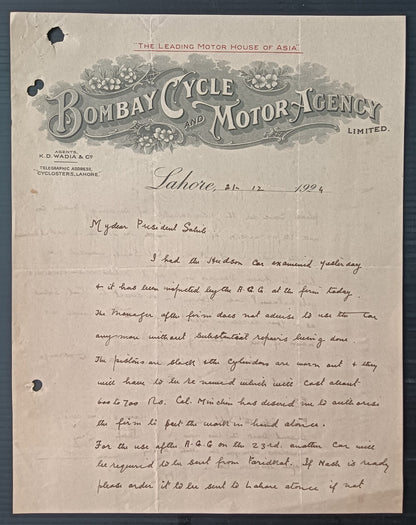 "THE LEADING MOTOR HOUSE OF ASIA"
BOMBAY CYCLE
AND MOTOR AGENCY
LIMITED.
AGENTS,
K. D. WADIA & Co
TELEGRAPHIC ADDRESS,
"CYCLOSTERS, LAHORE."
Lahore, 21- 12 1924
My dear President Sahib
I had the Hudson Car examined yesterday
& it has been inspected by the A.G.G at the firm today.
The Manager of the firm does not advise to use the car
anymore without substantial repairs being done.
The pistons are slack & the Cylinders are worn out & they
will have to be renewed which will cost about
600 to 700 Rs. Col. Minchin has desired me to authorise
the firm to put the work in hand at once.
For the use of the A.G.G on the 23rd. another Car will
be required to be sent from Faridkot. If Nash is ready
please order it to be sent to Lahore at once if not